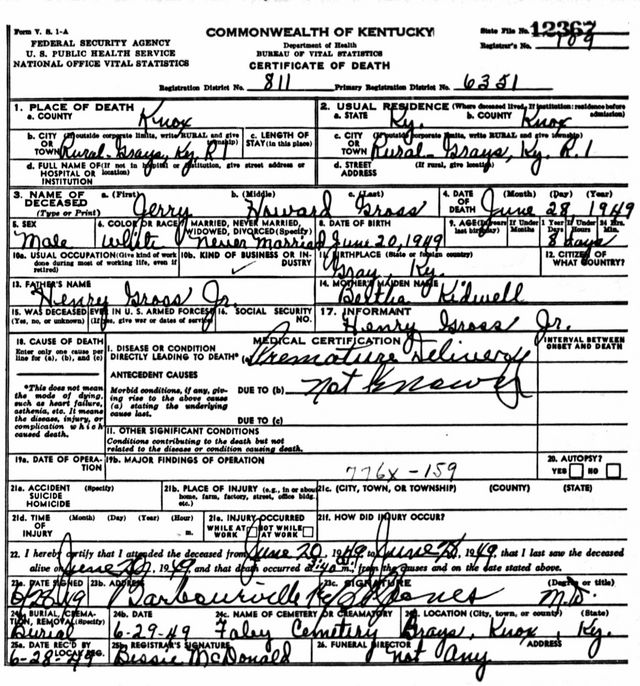 Form V. S. 1-A
COMMONWEALTH OF KENTUCKY
State File No. 12367
FEDERAL SECURITY AGENCY
U. S. PUBLIC HEALTH SERVICE
NATIONAL OFFICE VITAL STATISTICS
Department of Health
BUREAU OF VITAL STATISTICS
CERTIFICATE OF DEATH
Registrar's No. 109
Registration District No. 811 Primary Registration District No. 6351
1. PLACE OF DEATH
a. COUNTY Knox
2. USUAL RESIDENCE (Where deceased lived. If institution: residence before admission)
a. STATE Ky. b. COUNTY Knox
b. CITY (If outside corporate limits, write RURAL and give township)
OR TOWN Rural-Grays, Ky. R.1
c. LENGTH OF STAY (in this place)
c. CITY (If outside corporate limits, write RURAL and give township)
OR TOWN Rural-Grays, Ky. R.1
d. FULL NAME OF (If not in hospital or institution, give street address or location)
HOSPITAL OR INSTITUTION
d. STREET ADDRESS (If rural, give location)
3. NAME OF DECEASED (Type or Print)
a. (First) Jerry b. (Middle) Howard c. (Last) Gross
4. DATE OF DEATH (Month) (Day) (Year) June 28 1949
5. SEX Male
6. COLOR OR RACE White
7. MARRIED, NEVER MARRIED, WIDOWED, DIVORCED (Specify) Never Married
8. DATE OF BIRTH June 20, 1949
9. AGE (In years last birthday) If Under 1 Year Months Days If Under 24 Hrs. Hours Min. 8 days
10a. USUAL OCCUPATION (Give kind of work done during most of working life, even if retired)
10b. KIND OF BUSINESS OR INDUSTRY
11. BIRTHPLACE (State or foreign country) Gray, Ky.
12. CITIZEN OF WHAT COUNTRY?
13. FATHER'S NAME Henry Gross Jr.
14. MOTHER'S MAIDEN NAME Bertha Kidwell
15. WAS DECEASED EVER IN U. S. ARMED FORCES? (Yes, no, or unknown) (If yes, give war or dates of service)
16. SOCIAL SECURITY NO.
17. INFORMANT Henry Gross Jr.
18. CAUSE OF DEATH
Enter only one cause per line for (a), (b), and (c)
MEDICAL CERTIFICATION
INTERVAL BETWEEN ONSET AND DEATH
I. DISEASE OR CONDITION DIRECTLY LEADING TO DEATH* (a) Premature Delivery
*This does not mean the mode of dying, such as heart failure, asthenia, etc. It means the disease, injury, or complication which caused death.
ANTECEDENT CAUSES
Morbid conditions, if any, giving rise to the above cause (a) stating the underlying cause last.
DUE TO (b) Not Known
DUE TO (c)
II. OTHER SIGNIFICANT CONDITIONS
Conditions contributing to the death but not related to the disease or condition causing death.
19a. DATE OF OPERATION
19b. MAJOR FINDINGS OF OPERATION
776X-159
20. AUTOPSY? YES NO
21a. ACCIDENT SUICIDE HOMICIDE (Specify)
21b. PLACE OF INJURY (e.g., in or about home, farm, factory, street, office bldg., etc.)
21c. (CITY, TOWN, OR TOWNSHIP) (COUNTY) (STATE)
21d. TIME OF INJURY (Month) (Day) (Year) (Hour) m.
21e. INJURY OCCURRED WHILE AT WORK NOT WHILE AT WORK
21f. HOW DID INJURY OCCUR?
22. I hereby certify that I attended the deceased from June 20, 1949, to June 28, 1949, that I last saw the deceased
alive on June 20, 1949, and that death occurred at m., from the causes and on the date stated above.
23a. DATE SIGNED 6/28/49
23b. ADDRESS Barbourville Ky
23c. SIGNATURE Jones (Degree or title) M.D.
24a. BURIAL, CREMATION, REMOVAL (Specify) Burial
24b. DATE 6-29-49
24c. NAME OF CEMETERY OR CREMATORY Faley Cemetery
24d. LOCATION (City, town, or county) (State) Grays, Knox, Ky.
25a. DATE REC'D BY LOCAL REG. 6-28-49
25b. REGISTRAR'S SIGNATURE Bessie McDonald
26. FUNERAL DIRECTOR ADDRESS not Any